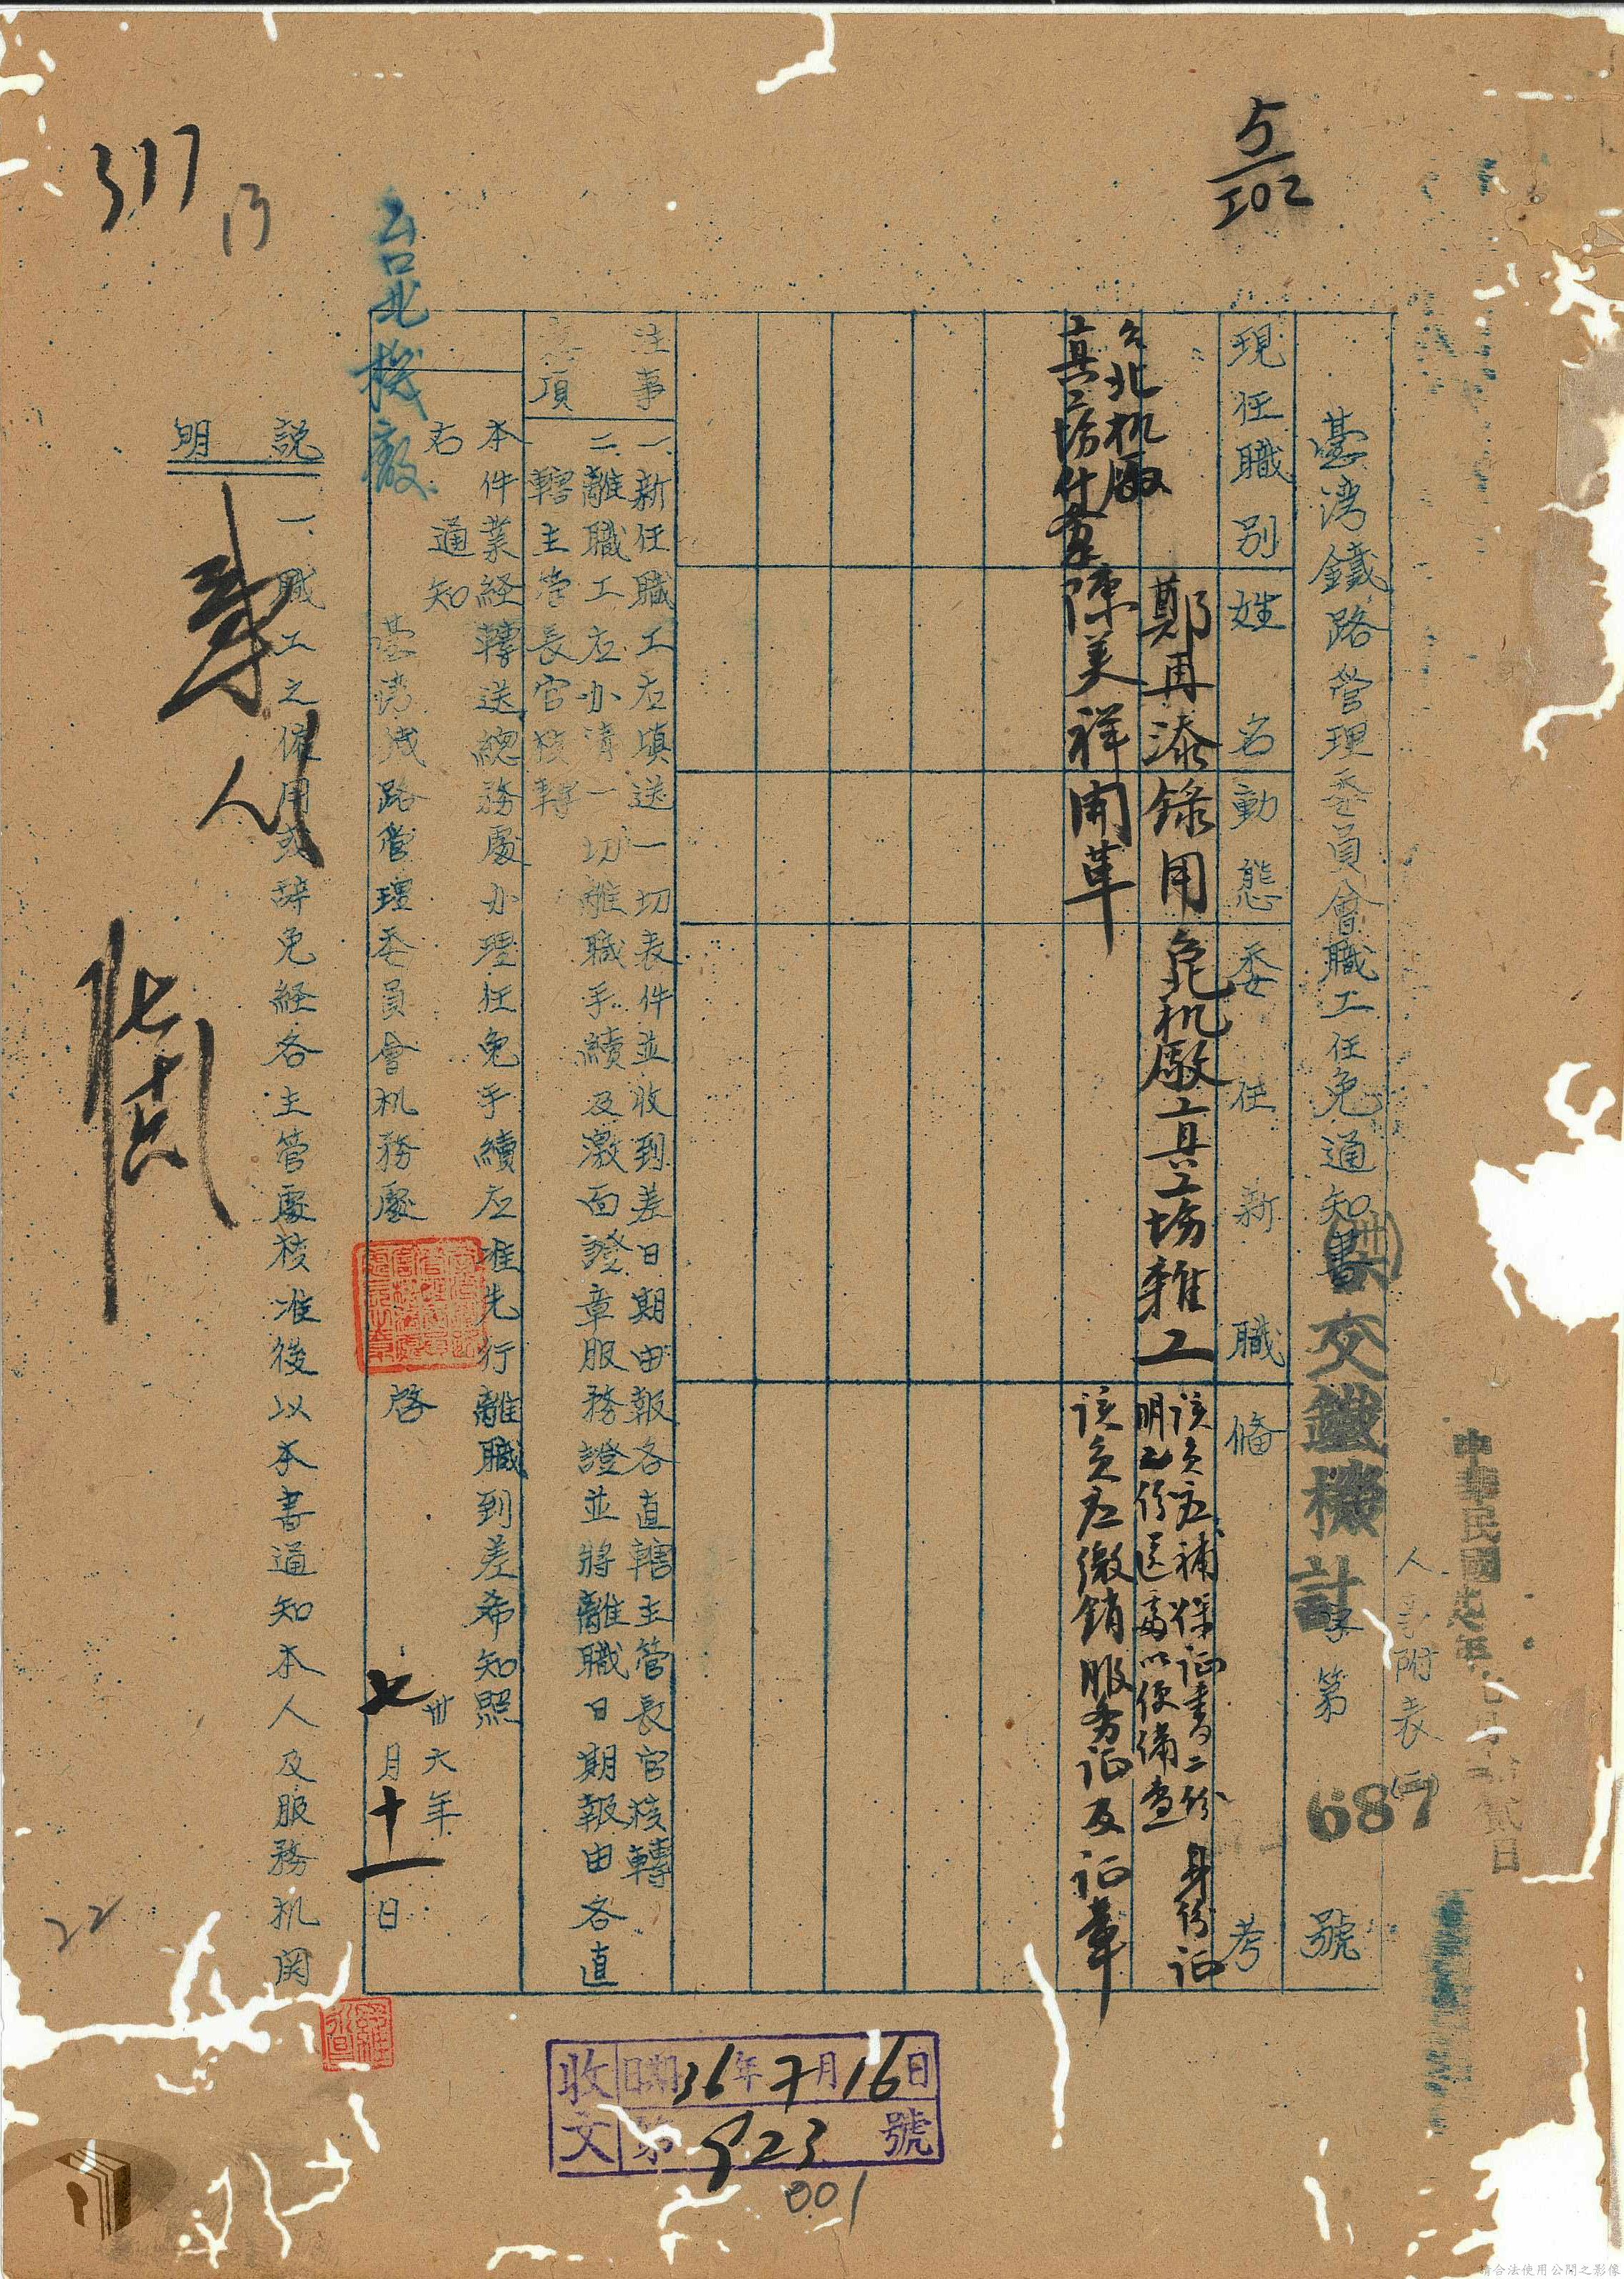 5/202
317
13
人事附表(二)
中華民國
貳日
臺湾鐵路管理委員會職工任免通知書
卅六
交鐵機計字第687號
現任職別
姓名
動態
委任新職
備考
鄭再添
錄用
北机厰工具工场雜工
该员应補保证書二份身份证
明书份送處以便備查
台北机厰
工具工场
陳美祥
開革
该员应缴銷服务证及证章
注意事項
一、新任職工应填送一切表件並收到差日期由報各直轄主管長官核轉
二、離職工应办清一切離職手續及激面證章服務證並將離職日期報由各直
轄主管長官核轉
本件業経轉送總務處办理任免手續应准先行離職到差希知照
右通知
台北機廠
臺湾鉄路管理委員會机務處 啓
卅六年
七月十一日
說明
一、職工之僱用或辞免経各主管處核准後以本書通知本人及服務机関
22
收文
日期36年7月16日
第923號
001
請合法使用公開之影像